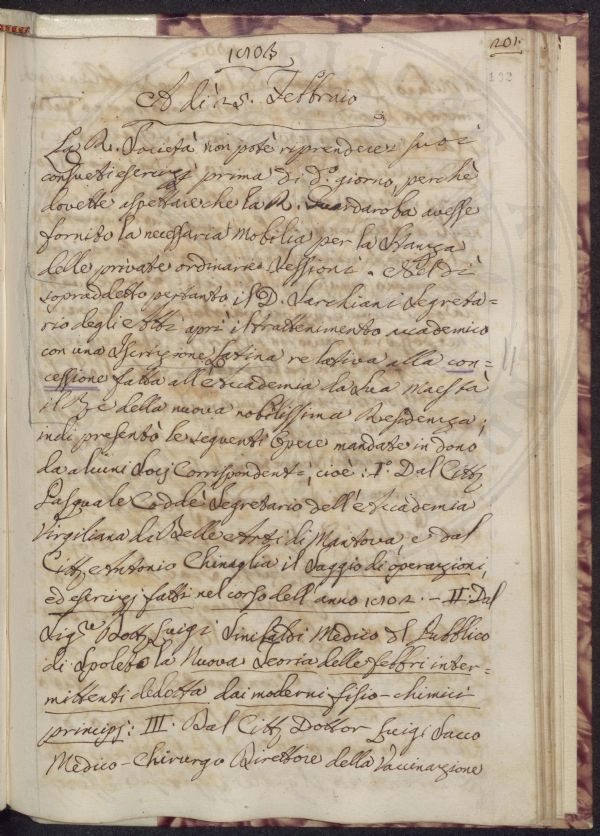 201.
132
1803
A dì 25. Febbraio
La R. Società non potè riprendere i suoi
consueti esercizj prima di d.° giorno, perchè
dovette aspettare che la R. Guardaroba avesse
fornito la necessaria Mobilia per la Stanza
delle private ordinarie Sessioni. Nel dì
sopraddetto pertanto il D. Sarchiani Segreta=
rio degli Atti aprì il trattenimento Accademico
con una Iscrizione Latina relativa alla con=
cessione fatta all'Accademia da Sua Maestà
il Re della nuova nobilissima Residenza;
indi presentò le seguenti Opere mandate in dono
da alcuni Socj Corrispondenti, cioè: I.° Dal Citt.
Pasquale Coddè Segretario dell'Accademia
Virgiliana di Belle Arti di Mantova e dal
Citt. Antonio Chinaglia il Saggio di operazioni,
ed esercizj fatti nel corso dell'anno 1802. - II. Dal
Sig.re Dott. Luigi Sinibaldi Medico del Pubblico
di Spoleto la Nuova Teoria delle febbri inter=
mittenti dedotta dai moderni fisio-chimici
principj: III. Dal Citt. Dottor Luigi Sacco
Medico-Chirurgo Direttore della Vaccinazione